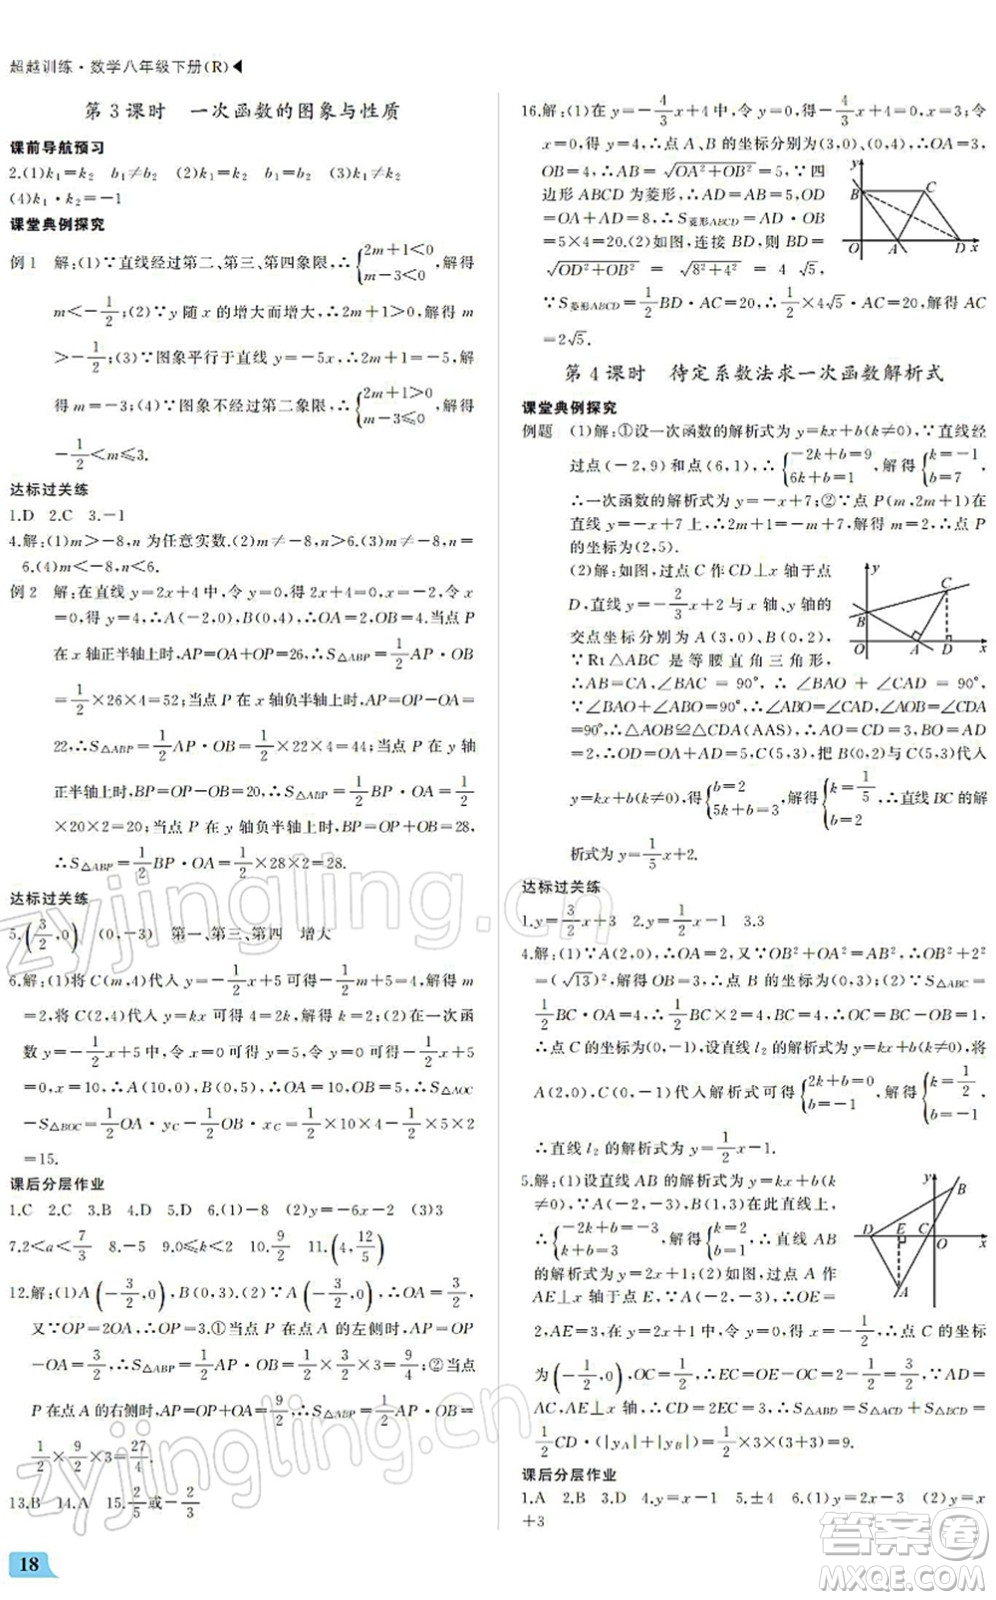 超越训练·数学八年级下册(R)◀
第3课时　一次函数的图象与性质
课前导航预习
2.(1)k₁=k₂　b₁≠b₂　(2)k₁=k₂　b₁=b₂　(3)k₁≠k₂
(4)k₁·k₂=-1
课堂典例探究
例1　解:(1)∵直线经过第二、第三、第四象限,∴{2m+1<0 m-3<0,解得
m<-1/2;(2)∵y随x的增大而增大,∴2m+1>0,解得m
>-1/2;(3)∵图象平行于直线y=-5x,∴2m+1=-5,解
得m=-3;(4)∵图象不经过第二象限,∴{2m+1>0 m-3≤0,解得
-1/2<m≤3.
达标过关练
1.D　2.C　3.-1
4.解:(1)m>-8,n为任意实数.(2)m≠-8,n≠6.(3)m≠-8,n=
6.(4)m<-8,n<6.
例2　解:在直线y=2x+4中,令y=0,得x=-2,令x=
0,得y=4,∴A(-2,0),B(0,4),∴OA=2,OB=4.当点P
在x轴正半轴上时,AP=OA+OP=26,∴S△ABP=1/2AP·OB
=1/2×26×4=52;当点P在x轴负半轴上时,AP=OP-OA=
22,∴S△ABP=1/2AP·OB=1/2×22×4=44;当点P在y轴
正半轴上时,BP=OP-OB=20,∴S△ABP=1/2BP·OA=1/2
×20×2=20;当点P在y轴负半轴上时,BP=OP+OB=28,
∴S△ABP=1/2BP·OA=1/2×28×2=28.
达标过关练
5.(3/2,0)　(0,-3)　第一、第三、第四　增大
6.解:(1)将C(m,4)代入y=-1/2x+5可得4=-1/2m+5,解得m
=2,将C(2,4)代入y=kx可得4=2k,解得k=2;(2)在一次函
数y=-1/2x+5中,令x=0,则y=5,令y=0,则-1/2x+5
=0,x=10,∴A(10,0),B(0,5),∴OA=10,OB=5,∴S△AOC
-S△BOC=1/2OA·yC-1/2OB·xC=1/2×10×4-1/2×5×2
=15.
课后分层作业
1.C　2.C　3.B　4.D　5.D　6.(1)-8　(2)y=-6x-2　(3)3
7.2<a<7/3　8.-5　9.0≤k<2　10.9/2　11.(4,12/5)
12.解:(1)A(-3/2,0),B(0,3).(2)∵A(-3/2,0),∴OA=3/2,
又∵OP=2OA,∴OP=3.①当点P在点A的左侧时,AP=OP
-OA=3/2,∴S△ABP=1/2AP·OB=1/2×3/2×3=9/4;②当点
P在点A的右侧时,AP=OP+OA=9/2,∴S△ABP=1/2AP·OB=
1/2×9/2×3=27/4.
13.B　14.A　15.2/5或-2/3
18
16.解:(1)在y=-4/3x+4中,令y=0,得0=-4/3x+4,x=3;令
x=0,得y=4,∴点A、B的坐标分别为(3,0)、(0,4),∴OA=3,
OB=4,∴AB=√(OA²+OB²)=5.∵四
边形ABCD为菱形,∴AD=AB=5,OD
=OA+AD=8,∴S菱形ABCD=AD·OB
=5×4=20.(2)如图,连接BD,BD=
√(OD²+OB²)=√(8²+4²)=4√5,
∵S菱形ABCD=1/2BD·AC=20,∴1/2×4√5·AC=20,解得AC
=2√5.
y B C O A D x
第4课时　待定系数法求一次函数解析式
课堂典例探究
例题　(1)解:①设一次函数的解析式为y=kx+b(k≠0),∵直线经
过点(-2,9)和点(6,1),∴{-2k+b=9 6k+b=1,解得{k=-1 b=7,
∴一次函数的解析式为y=-x+7;②∵点P(m,2m+1)在
直线y=-x+7上,∴2m+1=-m+7,解得m=2,∴点P
的坐标为(2,5).
(2)解:如图,过点C作CD⊥x轴于点
D,∵y=-2/3x+2与x轴、y轴的
交点坐标分别为A(3,0)、B(0,2).
∵Rt△ABC是等腰直角三角形,
∴BA=CA,∠BAC=90°,∴∠BAO+∠CAD=90°,
∵∠BAO+∠ABO=90°,∴∠ABO=∠CAD,∠AOB=∠CDA
=90°,∴△AOB≌△CDA(AAS),∴AO=CD=3,OB=DA=
2,∴OD=OA+AD=5,C(5,3),把B(0,2)与C(5,3)代入
y=kx+b(k≠0)得{b=2 5k+b=3,解得{k=1/5 b=2,∴直线BC的解
析式为y=1/5x+2.
y C B O A D x
达标过关练
1.y=3/2x+3　2.y=1/2x-1　3.3
4.解:(1)∵A(2,0),∴OA=2,又∵OB²+OA²=AB²,∴OB²+2²
=(√13)²,解得OB=3,∴点B的坐标为(0,3);(2)∵S△ABC=
1/2BC·OA=4,∴1/2BC×2=4,解得BC=4,∴OC=4-3=1,
∴点C的坐标为(0,-1),设直线l₂的解析式为y=kx+b(k≠0),将
A(2,0),C(0,-1)代入解析式得{2k+b=0 b=-1,解得{k=1/2 b=-1,
∴直线l₂的解析式为y=1/2x-1.
5.解:(1)设直线AB的解析式为y=kx+b(k
≠0),∵A(-2,-3),B(1,3)在此直线上,
∴{-2k+b=-3 k+b=3,解得{k=2 b=1,∴直线AB
的解析式为y=2x+1;(2)如图,过点A作
AE⊥x轴于点E,∵A(-2,-3),∴OE=
2,AE=3,在y=2x+1中,令y=0,得x=-1/2,∴点C的坐标
为(-1/2,0),∴EC=OE-OC=2-1/2=3/2.又∵AD=
AC,AE⊥x轴,∴CD=2EC=3,∴S△ABD=S△ACD+S△BCD=
1/2CD·(|yA|+|yB|)=1/2×3×(3+3)=9.
y B D E C O x A
课后分层作业
1.A　2.B　3.D　4.y=-x+5　5.±4　6.(1)y=x-3　(2)y=x
+3
zyjingling.cn
zyjingling.cn
答案圈
MXQE.COM